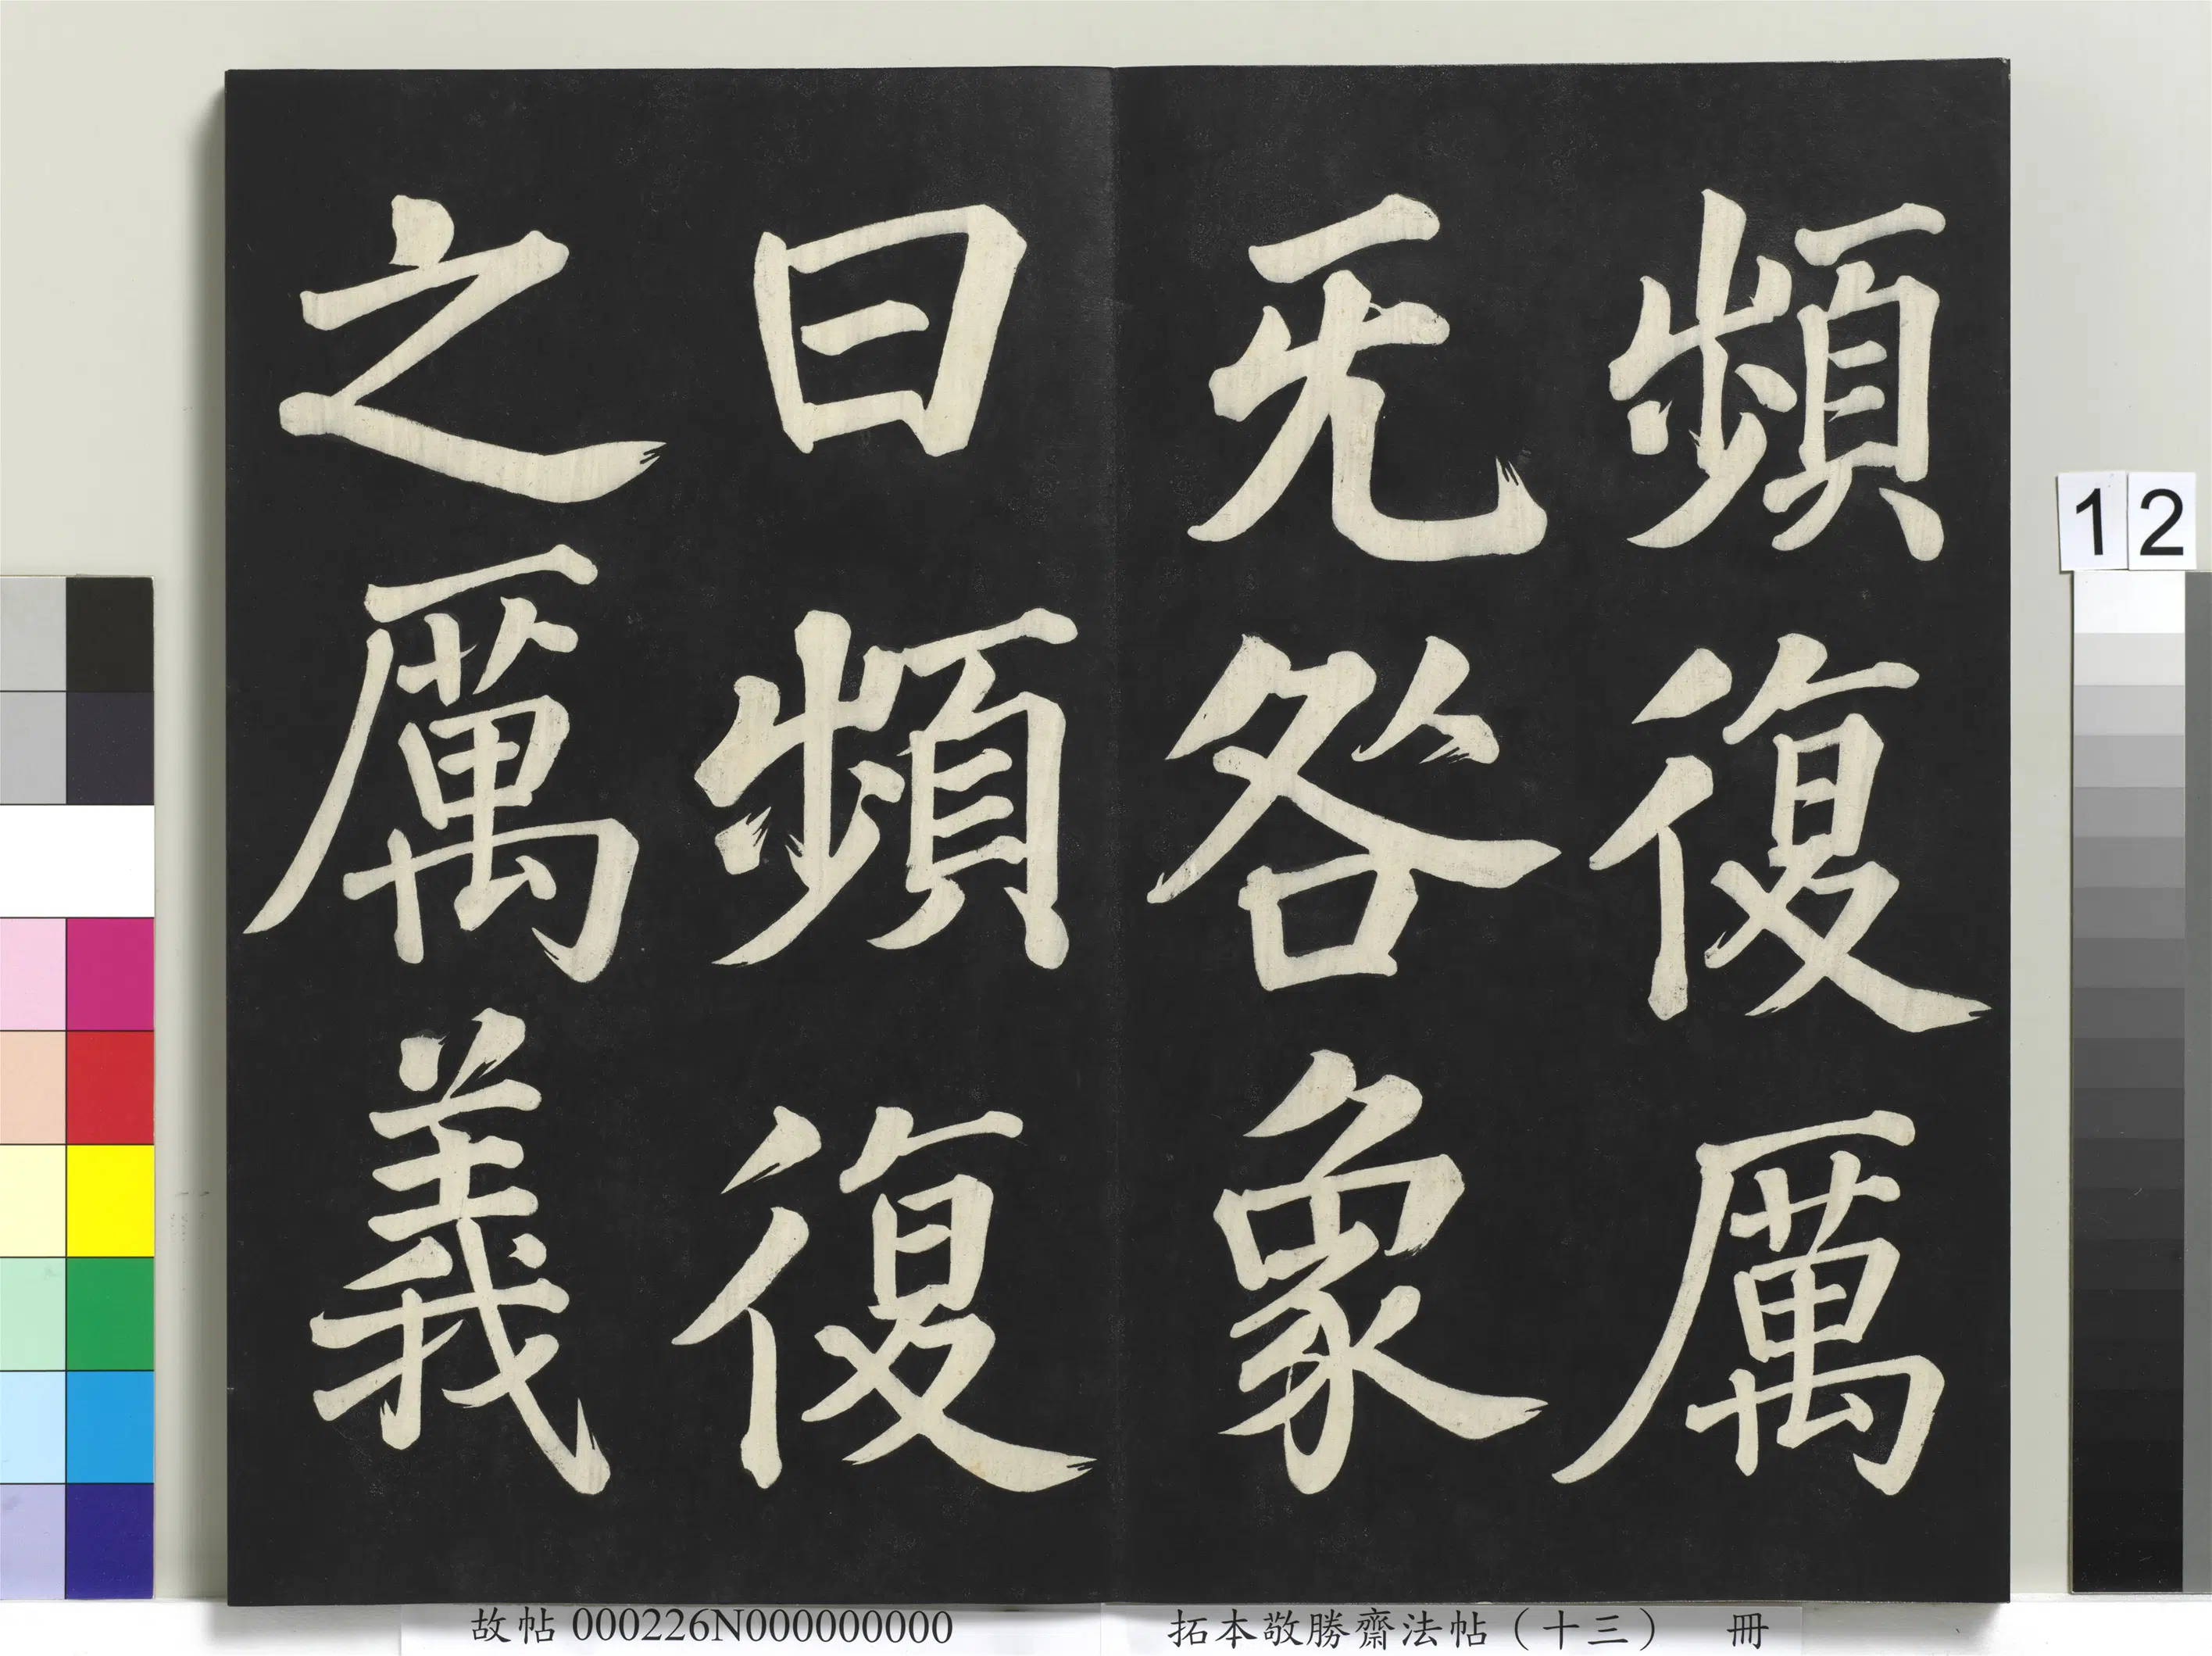 頻復厲
无咎象
曰頻復
之厲義
12
故帖 000226N000000000
拓本敬勝齋法帖（十三） 冊